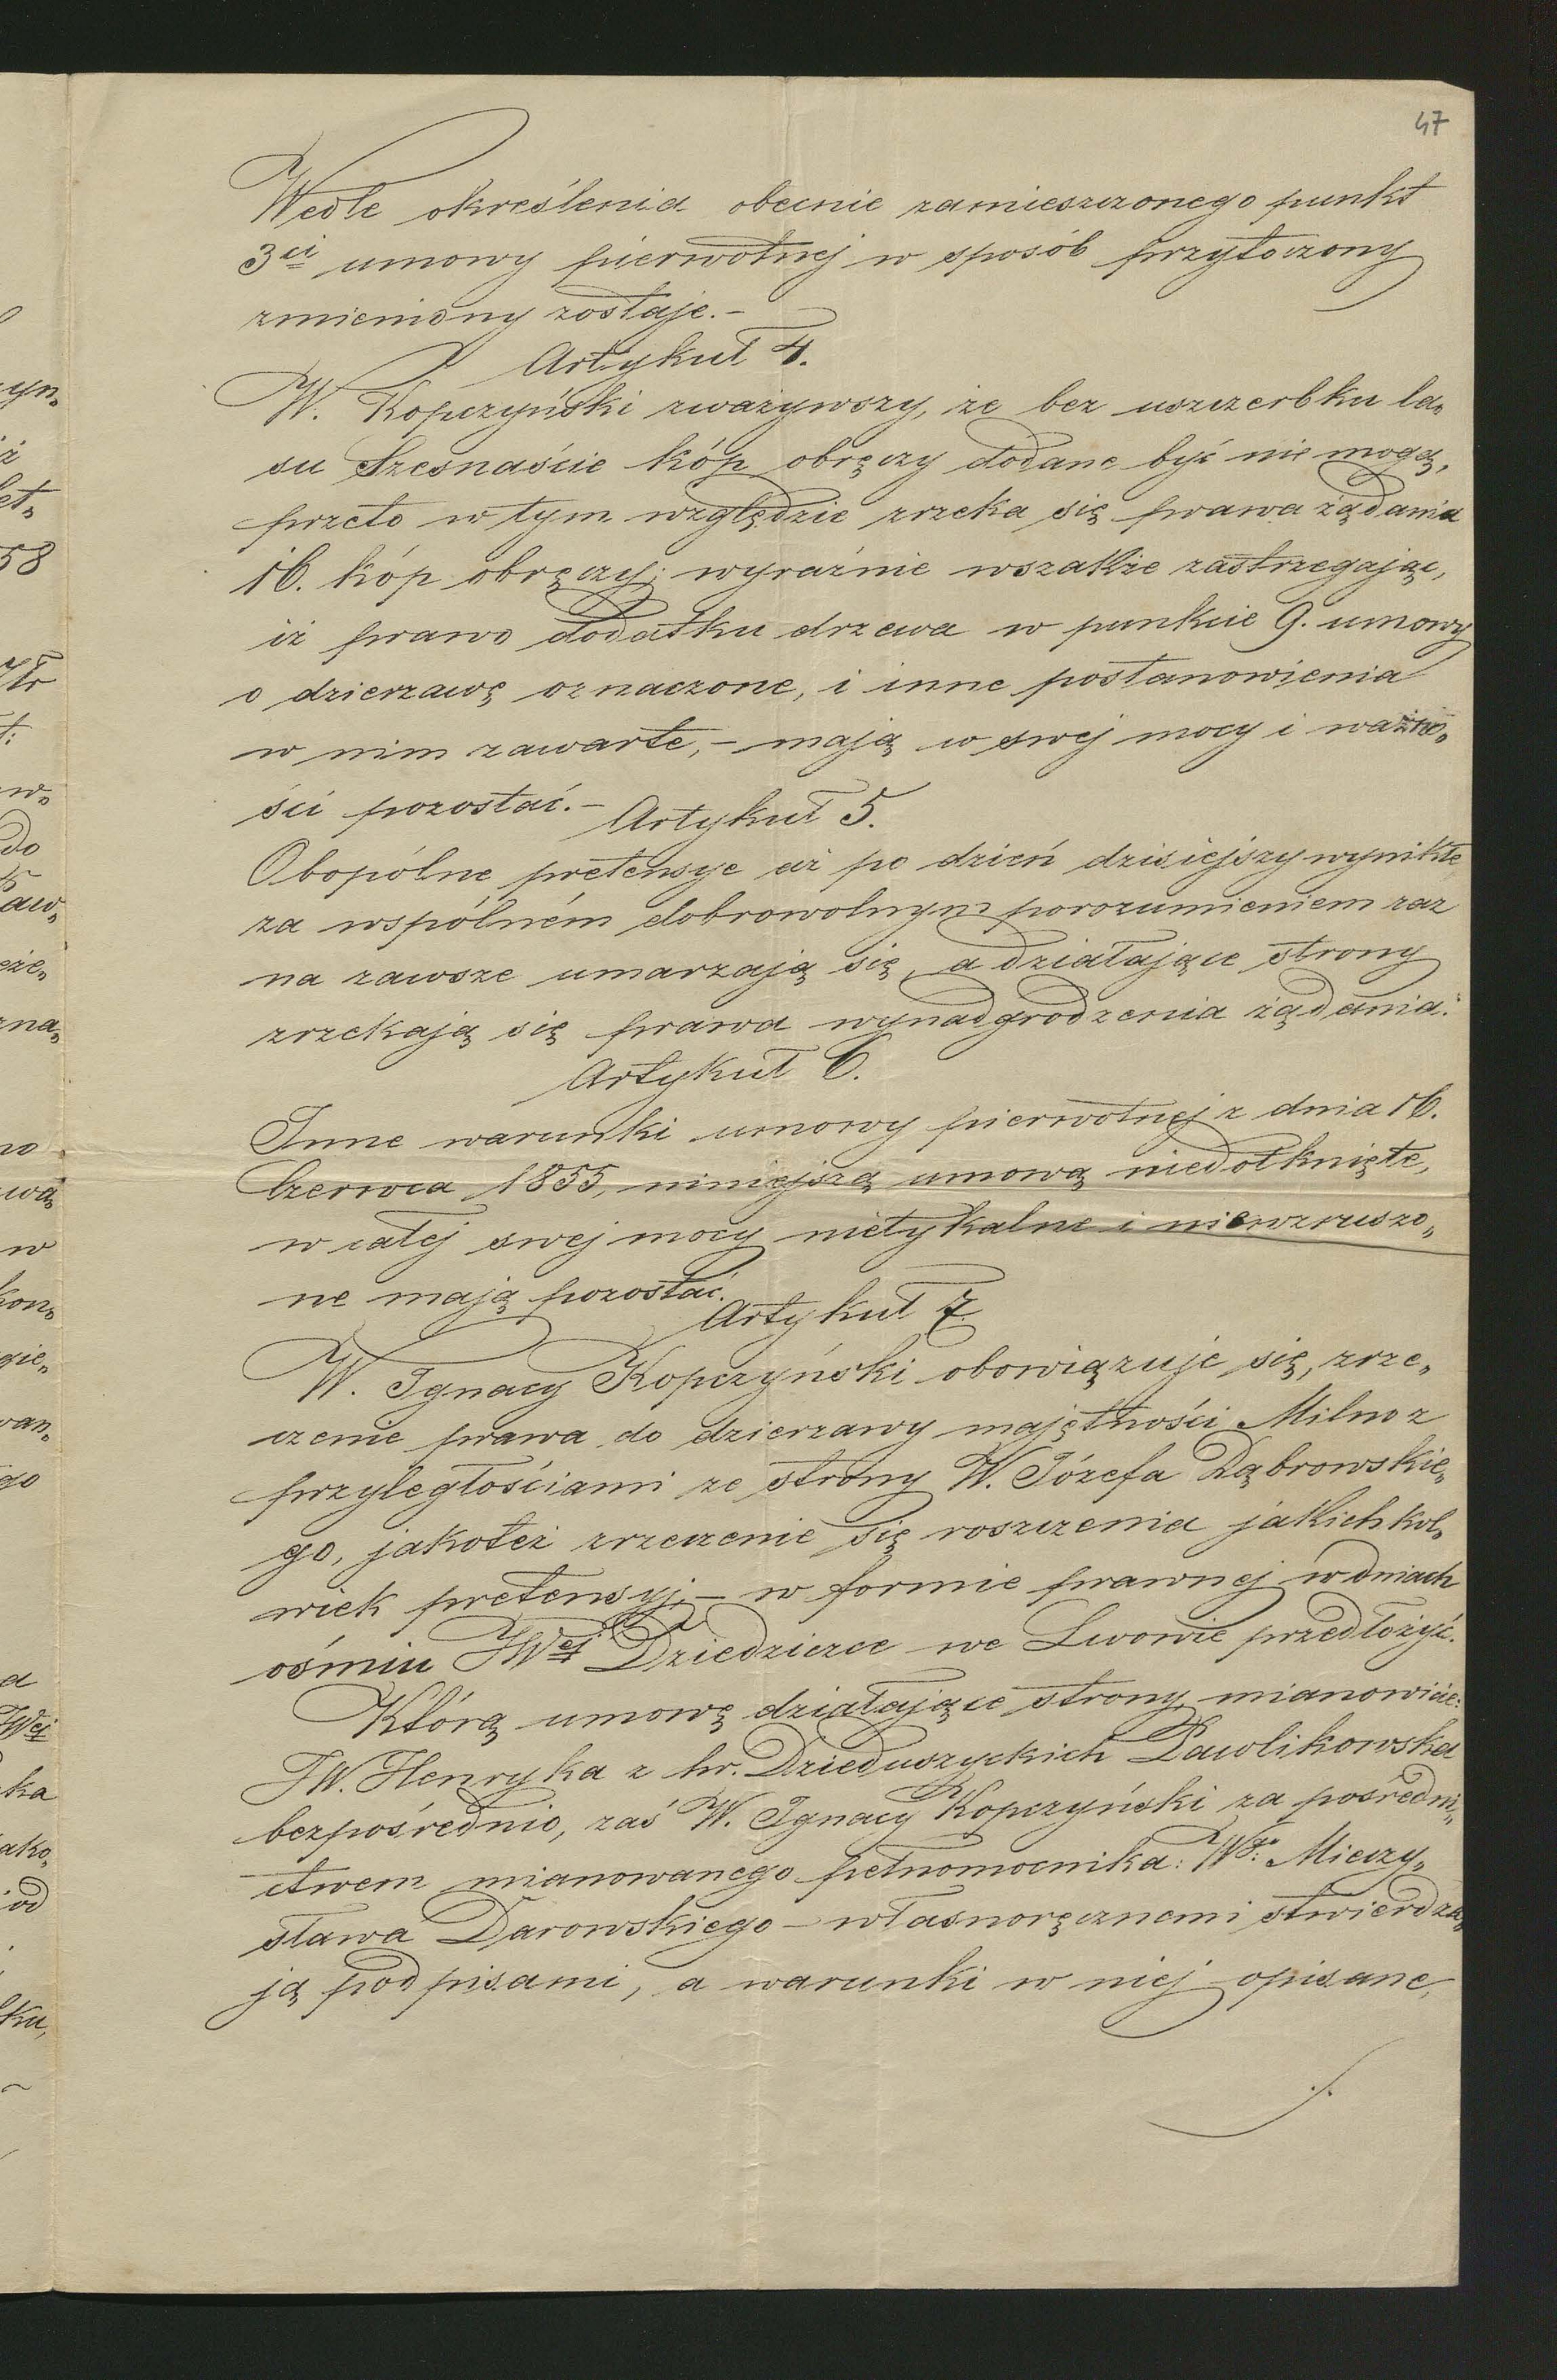 47
Wedle określenia obecnie zamieszczonego punkt
3ci umowy pierwotnej w sposób przytoczony
zmieniony zostaje.-
Artykuł 4.
W. Kopczyński zważywszy, że bez uszczerbku la„
su Szesnaście kóp obręczy dodane być nie mogą,
przeto w tym względzie zrzeka się prawa żądania
16. kóp obręczy; wyraźnie wszakże zastrzegając,
iż prawo dodatku drzewa w punkcie 9. umowy
o dzierzawę oznaczone, i inne postanowienia
w nim zawarte,- mają w swej mocy i ważno„
ści pozostać.-
Artykuł 5.
Obopólne pretensye aż po dzień dzisiejszy wynikłe
za wspólném dobrowolnym porozumieniem raz
na zawsze umarzają się, a działające strony
zrzekają się prawa wynadgrodzenia żądania.
Artykuł 6.
Inne warunki umowy pierwotnej z dnia 16.
Czerwca 1855, niniejszą umową niedotknięte,
w całej swej mocy nietykalne i niewzruszo„
ne mają pozostać.
Artykuł 7.
W. Ignacy Kopczyński obowiązuje się, zrze„
czenie prawa do dzierzawy majętności Milno z
przyległościami ze strony W. Józefa Dąbrowskie„
go, jakoteż zrzeczenie się roszczenia jakichkol„
wiek pretensyj,- w formie prawnej w dniach
ośmiu JWej Dziedziczce we Lwowie przedłożyć.
Którą umowę działające strony mianowicie:
JW. Henryka z hr. Dzieduszyckich Pawlikowska
bezpośrednio, zaś W. Ignacy Kopczyński za pośredni„
ctwem mianowanego pełnomocnika: Wgo: Mieczy„
sława Darowskiego - własnoręcznemi stwierdza„
ją podpisami, a warunki w niej opisane,
./.
yn„
ż
let„
58
t:
w„
do
aw„
eże„
zna„
no
wą
w
kon„
gie„
wan„
go
a
JWej
ka
ako„
od
ku,